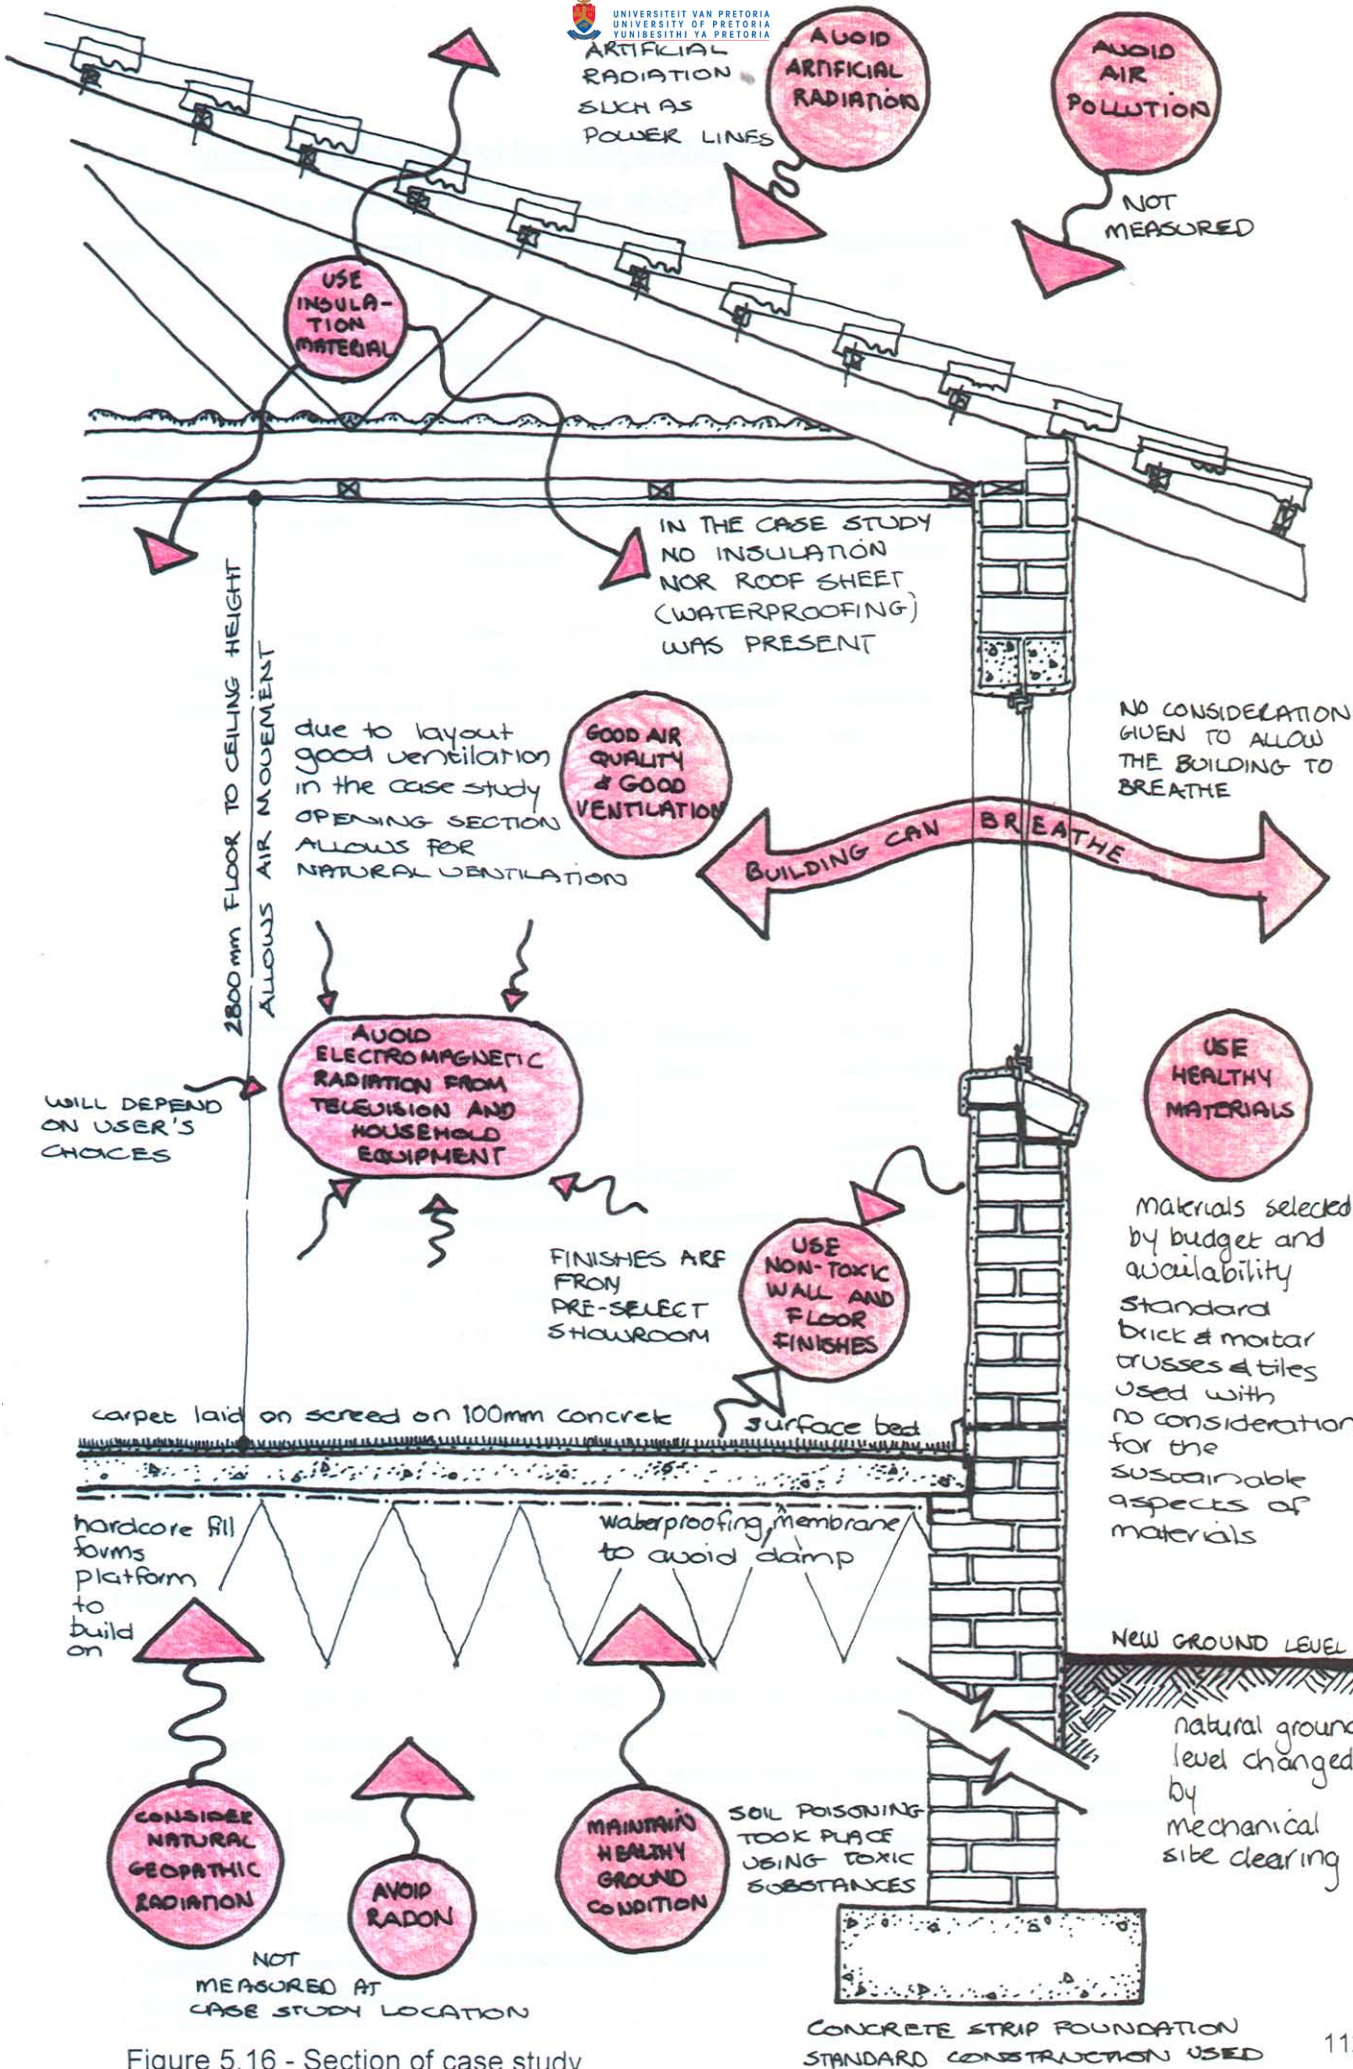 UNIVERSITEIT VAN PRETORIA
UNIVERSITY OF PRETORIA
YUNIBESITHI YA PRETORIA
ARTIFICIAL
RADIATION
SUCH AS
POWER LINES
AVOID
ARTIFICIAL
RADIATION
AVOID
AIR
POLLUTION
NOT
MEASURED
USE
INSULA-
TION
MATERIAL
IN THE CASE STUDY
NO INSULATION
NOR ROOF SHEET
(WATERPROOFING)
WAS PRESENT
2800mm FLOOR TO CEILING HEIGHT
ALLOWS AIR MOVEMENT
due to layout
good ventilation
in the case study
OPENING SECTION
ALLOWS FOR
NATURAL VENTILATION
GOOD AIR
QUALITY
& GOOD
VENTILATION
NO CONSIDERATION
GIVEN TO ALLOW
THE BUILDING TO
BREATHE
BUILDING CAN BREATHE
AVOID
ELECTROMAGNETIC
RADIATION FROM
TELEVISION AND
HOUSEHOLD
EQUIPMENT
WILL DEPEND
ON USER'S
CHOICES
USE
HEALTHY
MATERIALS
materials selected
by budget and
availability
standard
brick & mortar
trusses & tiles
used with
no consideration
for the
sustainable
aspects of
materials
FINISHES ARE
FROM
PRE-SELECT
SHOWROOM
USE
NON-TOXIC
WALL AND
FLOOR
FINISHES
carpet laid on screed on 100mm concrete surface bed
hardcore fill
forms
platform
to
build
on
waterproofing membrane
to avoid damp
NEW GROUND LEVEL
natural ground
level changed
by
mechanical
site clearing
CONSIDER
NATURAL
GEOPATHIC
RADIATION
AVOID
RADON
NOT
MEASURED AT
CASE STUDY LOCATION
MAINTAIN
HEALTHY
GROUND
CONDITION
SOIL POISONING
TOOK PLACE
USING TOXIC
SUBSTANCES
CONCRETE STRIP FOUNDATION
STANDARD CONSTRUCTION USED
Figure 5.16 - Section of case study